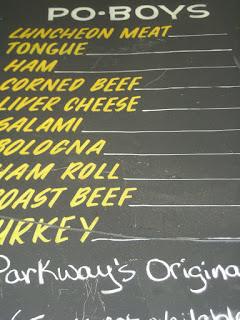 PO-BOYS
LUNCHEON MEAT
TONGUE
HAM
CORNED BEEF
LIVER CHEESE
SALAMI
BOLOGNA
HAM ROLL
ROAST BEEF
TURKEY
Parkway's Origina
available